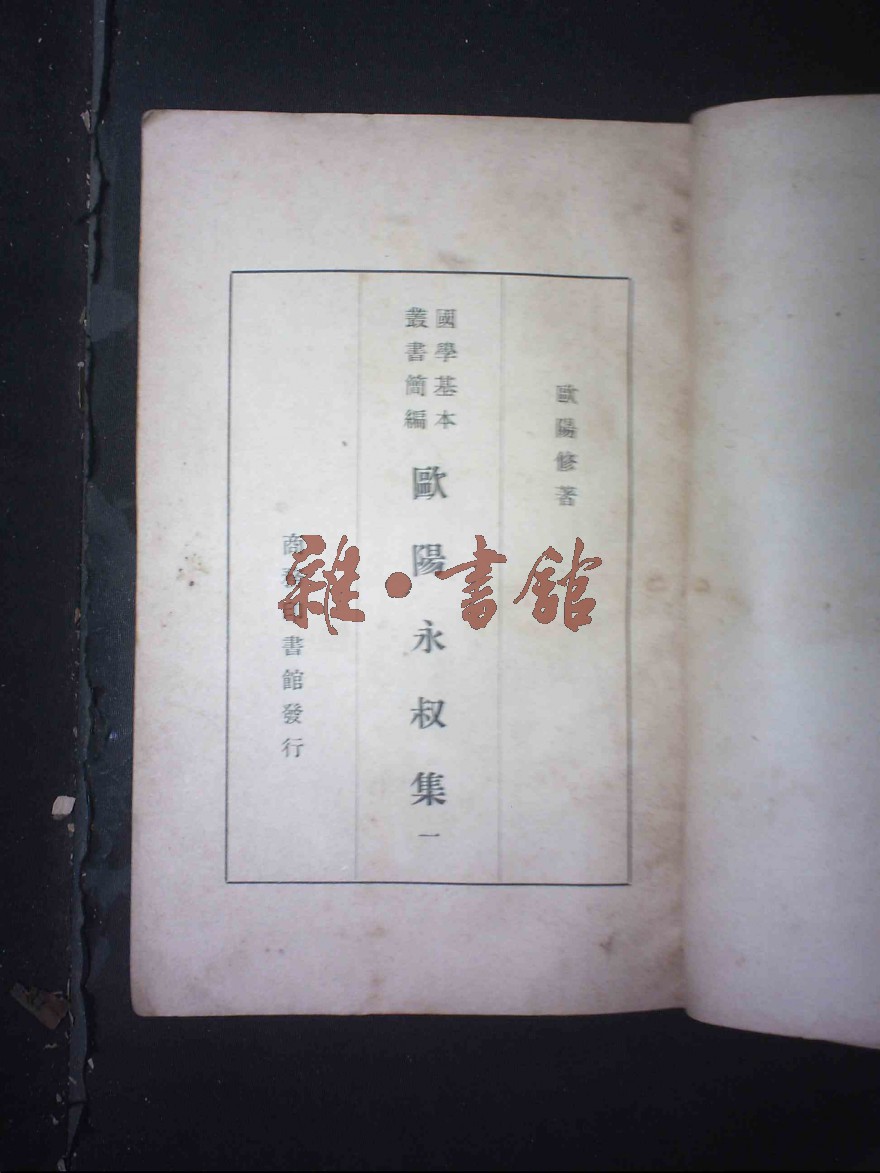 歐陽修著
國學基本
叢書簡編
歐陽永叔集一
商務印書館發行
雜·書館